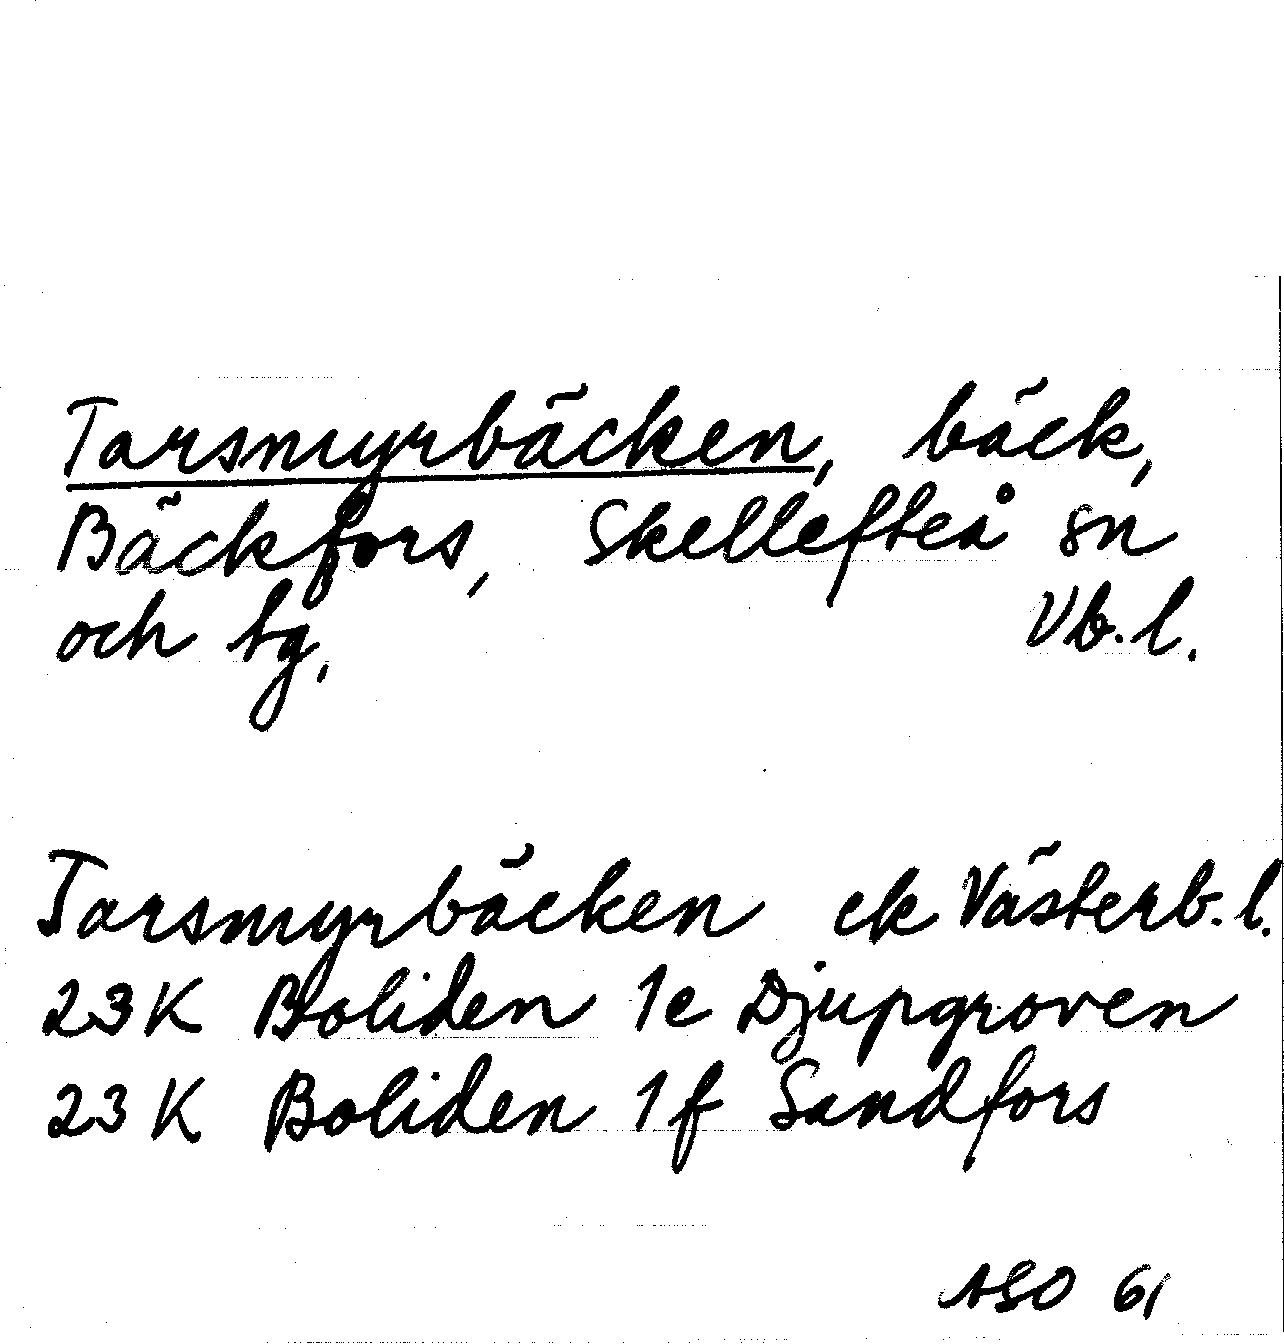 Tarsmyrbäcken, bäck,
Bäckfors, Skellefteå sn
och tg. Vb.l.
Tarsmyrbäcken ek Västerb.l.
23K Boliden 1e Djupgroven
23K Boliden 1f Sandfors
ASO 61